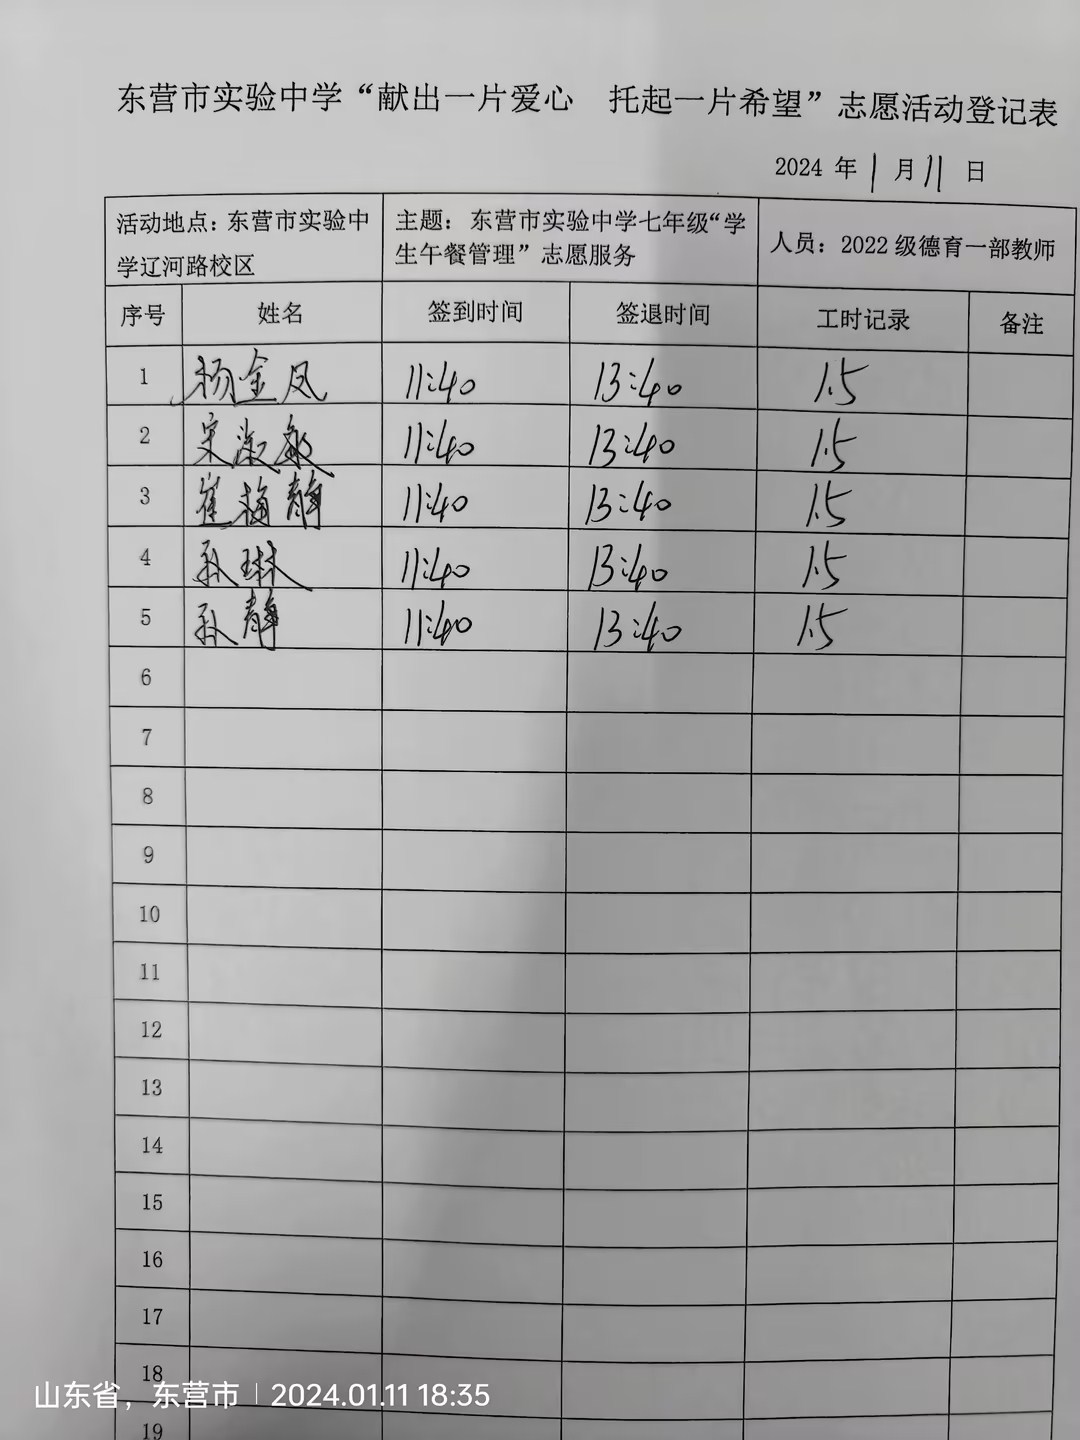 东营市实验中学“献出一片爱心 托起一片希望”志愿活动登记表
2024 年 1 月 11 日
活动地点：东营市实验中学辽河路校区 主题：东营市实验中学七年级“学生午餐管理”志愿服务 人员：2022 级德育一部教师
序号 姓名 签到时间 签退时间 工时记录 备注
1 杨金凤 11:40 13:40 1.5
2 宋淑敏 11:40 13:40 1.5
3 崔梅静 11:40 13:40 1.5
4 孙琳 11:40 13:40 1.5
5 孙静 11:40 13:40 1.5
6
7
8
9
10
11
12
13
14
15
16
17
18
19
山东省，东营市 | 2024.01.11 18:35